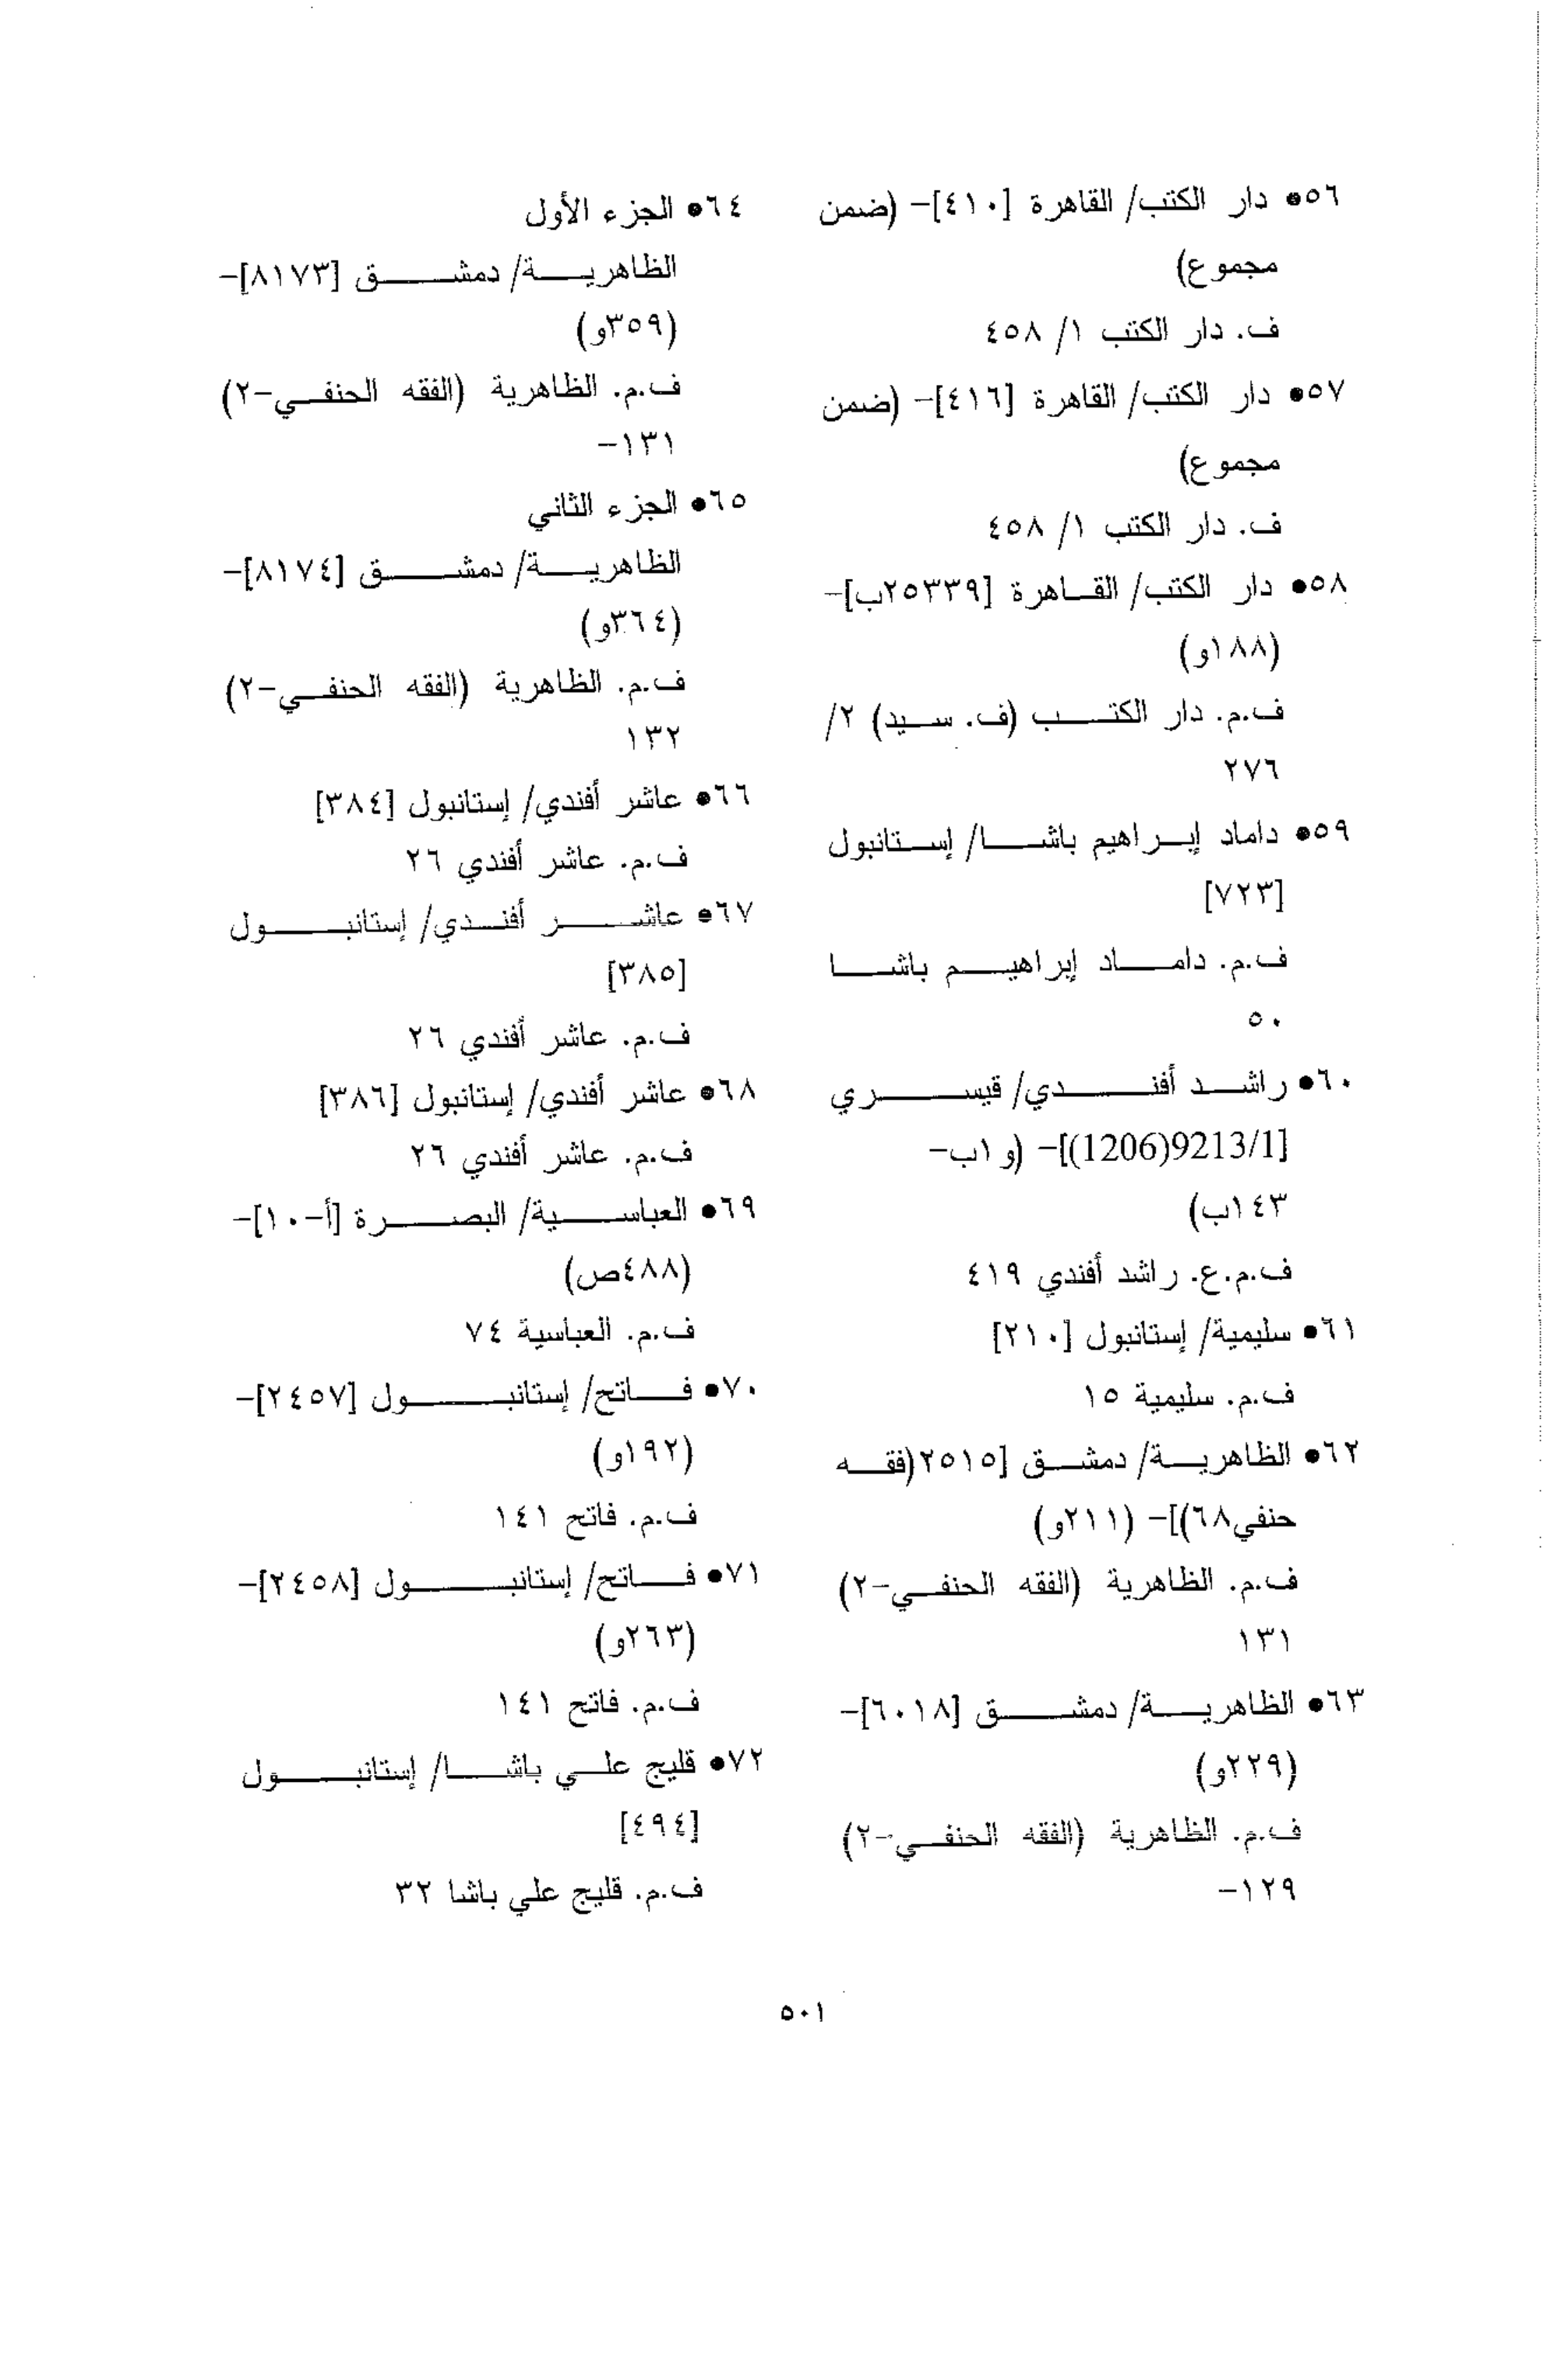 ٥٦• دار الكتب/ القاهرة [٤١٠]- (ضمن
مجموع)
ف. دار الكتب ١/ ٤٥٨
٥٧• دار الكتب/ القاهرة [٤١٦]- (ضمن
مجموع)
ف. دار الكتب ١/ ٤٥٨
٥٨• دار الكتب/ القاهرة [٢٥٣٣٩ب]-
(١٨٨و)
ف.م. دار الكتب (ف. سيد) ٢/
٢٧٦
٥٩• داماد إبراهيم باشا/ إستانبول
[٧٢٣]
ف.م. داماد إبراهيم باشا
٥٠
٦٠• راشد أفندي/ قيسري
[9213/1(1206)]- (و١ب-
١٤٣ب)
ف.م.ع. راشد أفندي ٤١٩
٦١• سليمية/ إستانبول [٢١٠]
ف.م. سليمية ١٥
٦٢• الظاهرية/ دمشق [٢٥١٥(فقه
حنفي٦٨)]- (٢١١و)
ف.م. الظاهرية (الفقه الحنفي-٢)
١٣١
٦٣• الظاهرية/ دمشق [٦٠١٨]-
(٢٢٩و)
ف.م. الظاهرية (الفقه الحنفي-٢)
١٢٩-
٦٤• الجزء الأول
الظاهرية/ دمشق [٨١٧٣]-
(٣٥٩و)
ف.م. الظاهرية (الفقه الحنفي-٢)
١٣١-
٦٥• الجزء الثاني
الظاهرية/ دمشق [٨١٧٤]-
(٣٦٤و)
ف.م. الظاهرية (الفقه الحنفي-٢)
١٣٢
٦٦• عاشر أفندي/ إستانبول [٣٨٤]
ف.م. عاشر أفندي ٢٦
٦٧• عاشر أفندي/ إستانبول
[٣٨٥]
ف.م. عاشر أفندي ٢٦
٦٨• عاشر أفندي/ إستانبول [٣٨٦]
ف.م. عاشر أفندي ٢٦
٦٩• العباسية/ البصرة [أ-١٠]-
(٤٨٨ص)
ف.م. العباسية ٧٤
٧٠• فاتح/ إستانبول [٢٤٥٧]-
(١٩٢و)
ف.م. فاتح ١٤١
٧١• فاتح/ إستانبول [٢٤٥٨]-
(٢٦٣و)
ف.م. فاتح ١٤١
٧٢• قليج علي باشا/ إستانبول
[٤٩٤]
ف.م. قليج علي باشا ٣٢
٥٠١